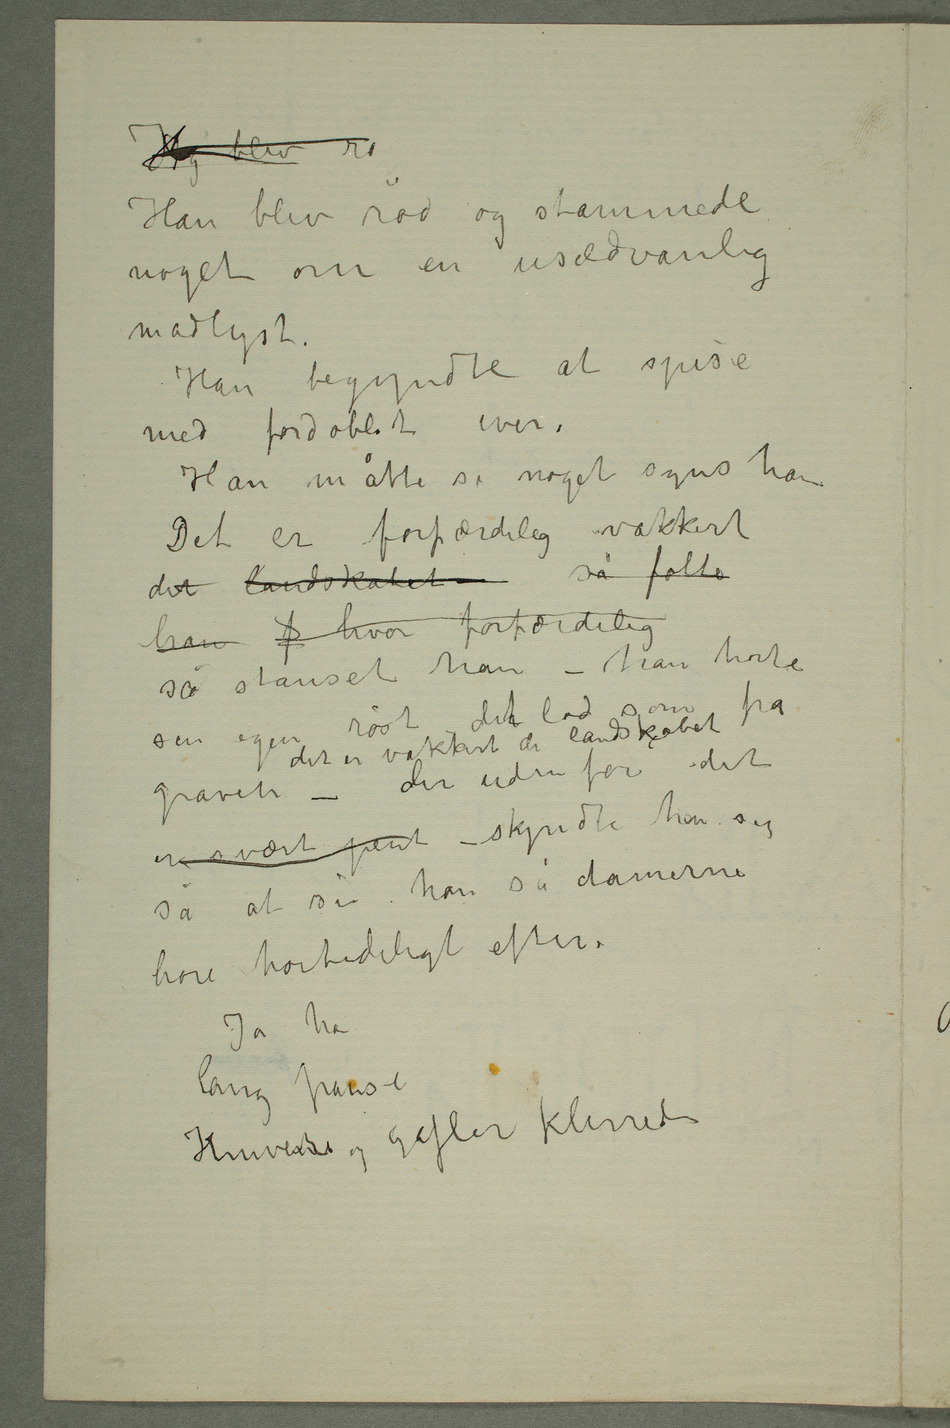 Jeg blev rø
Han blev rød og stammede
noget om en usædvanlig
madlyst.
Han begyndte at spise
med fordoblet iver.
Han måtte si noget syns han
Det er forfærdelig vakkert
det landskabet så følte
han f hvor forfærdelig
så stanset han – han hørte
sin egen røst det lød som fra
det er vakkert de landskabet
graven – der uden for det
er svært pent – skyndte han sig
så at si han så damerne
høre høitideligt efter.
Ja ha
lang pause
Knivene og gafler klirrede